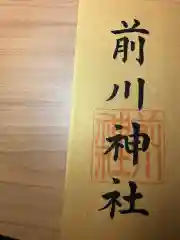 前川神社